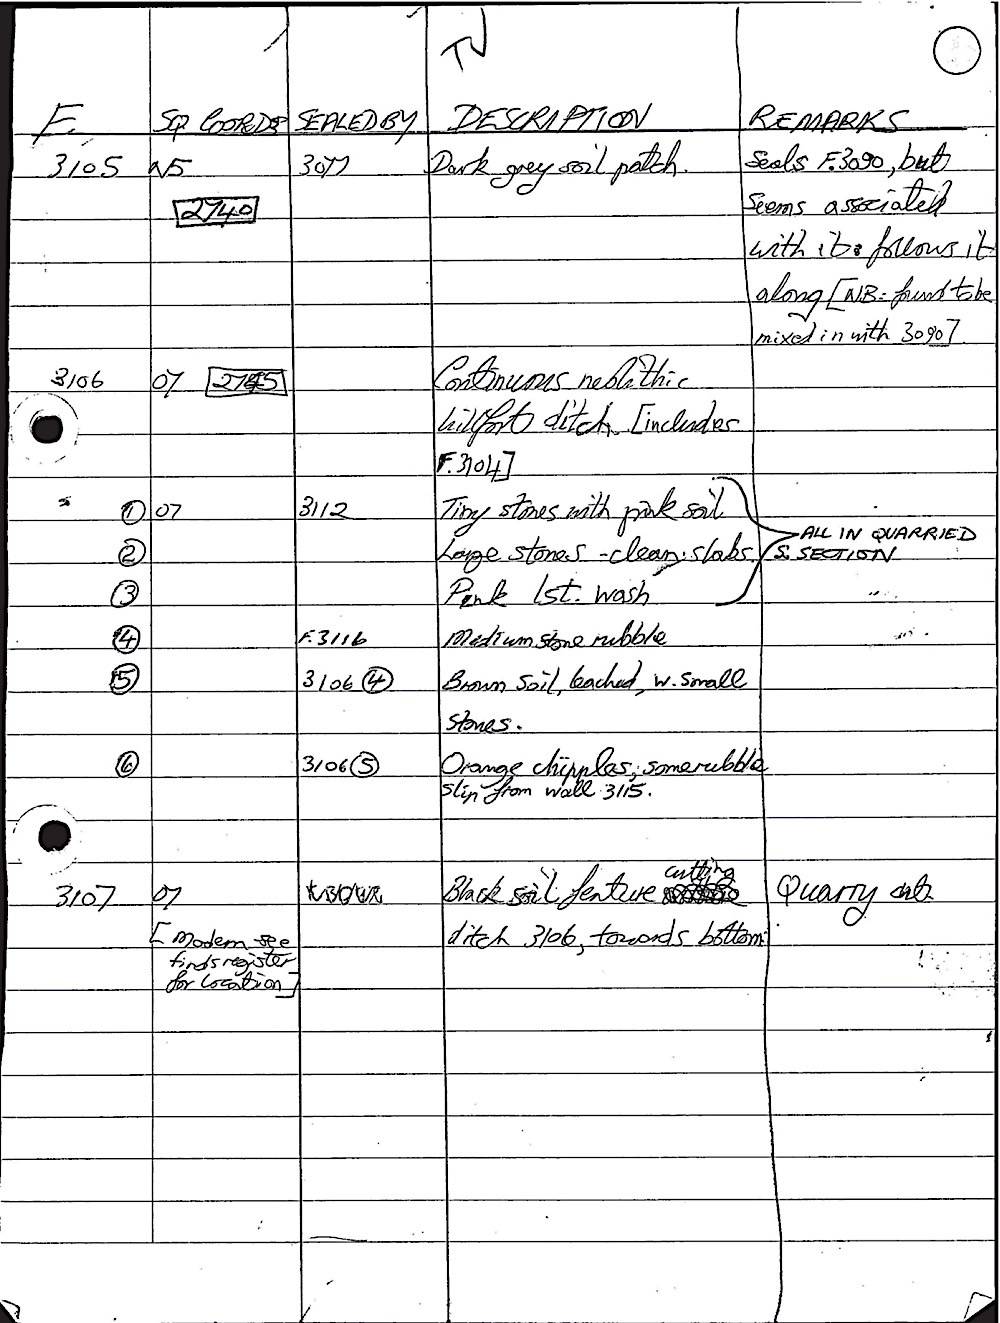 TV
F. SQ COORDS SEALED BY DESCRIPTION REMARKS
3105 N5 3077 Dark grey soil patch. Seals F.3090, but
2740 seems associated
with it: follows it
along [NB: found to be
mixed in with 3090]
3106 07 2745 Continuous neolithic
hillfort ditch. [includes
F.3104]
① 07 3112 Tiny stones with pink soil
② Large stones - clean slabs. ALL IN QUARRIED
S. SECTION
③ Pink 1st. wash
④ F.3116 Medium stone rubble
⑤ 3106 ④ Brown soil, leached, w. small
stones.
⑥ 3106 ⑤ Orange chipples; some rubble
slip from wall 3115.
cutting
3107 07 Black soil feature Quarry
ditch 3106, towards bottom
[Modern see
finds register
for location]